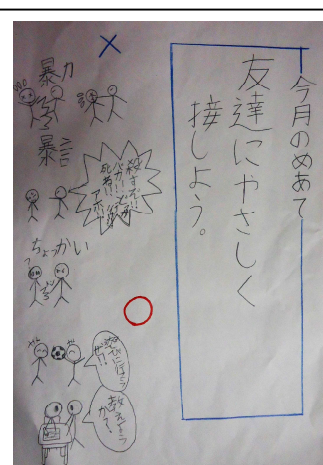 今月のめあて
友達にやさしく
接しよう。
暴力
暴言
殺すぞ!!
バカ!!
死ね!!アホ
ちょかい
遊びに行こう
ぜ!!
教え
か?